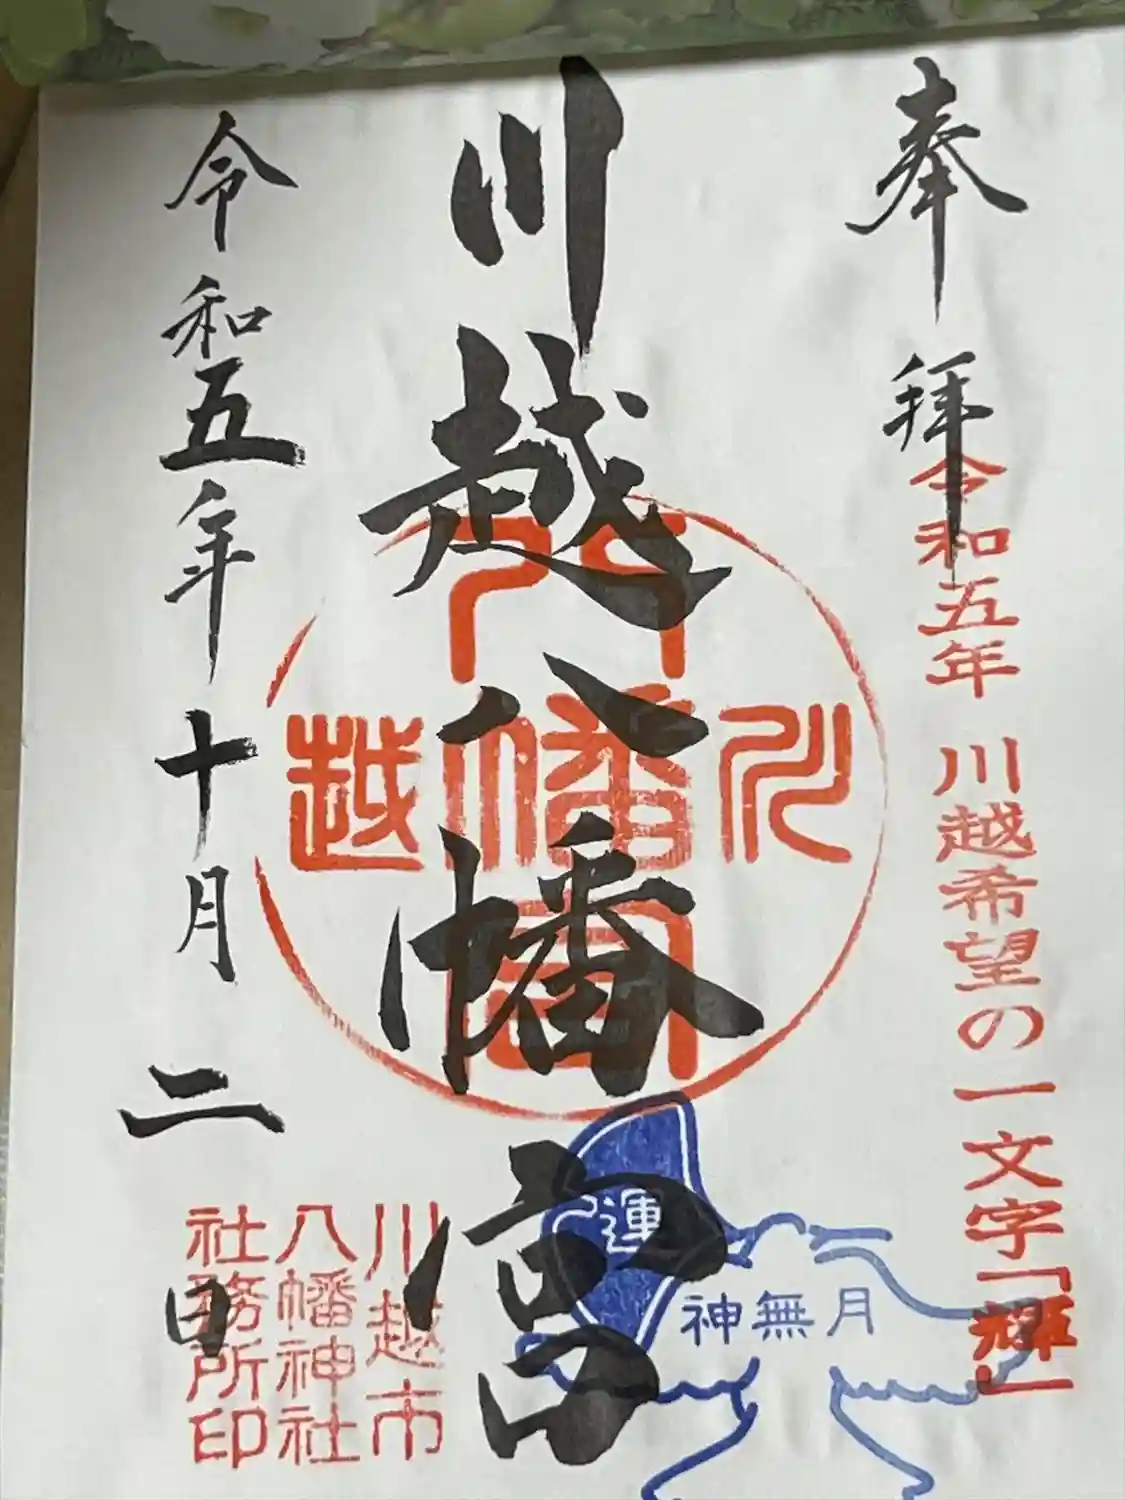 奉拝
令和五年 川越希望の一文字「輝」
川越八幡宮
川越
八幡宮
運
神無月
令和五年十月二日
川越市
八幡神社
社務所印